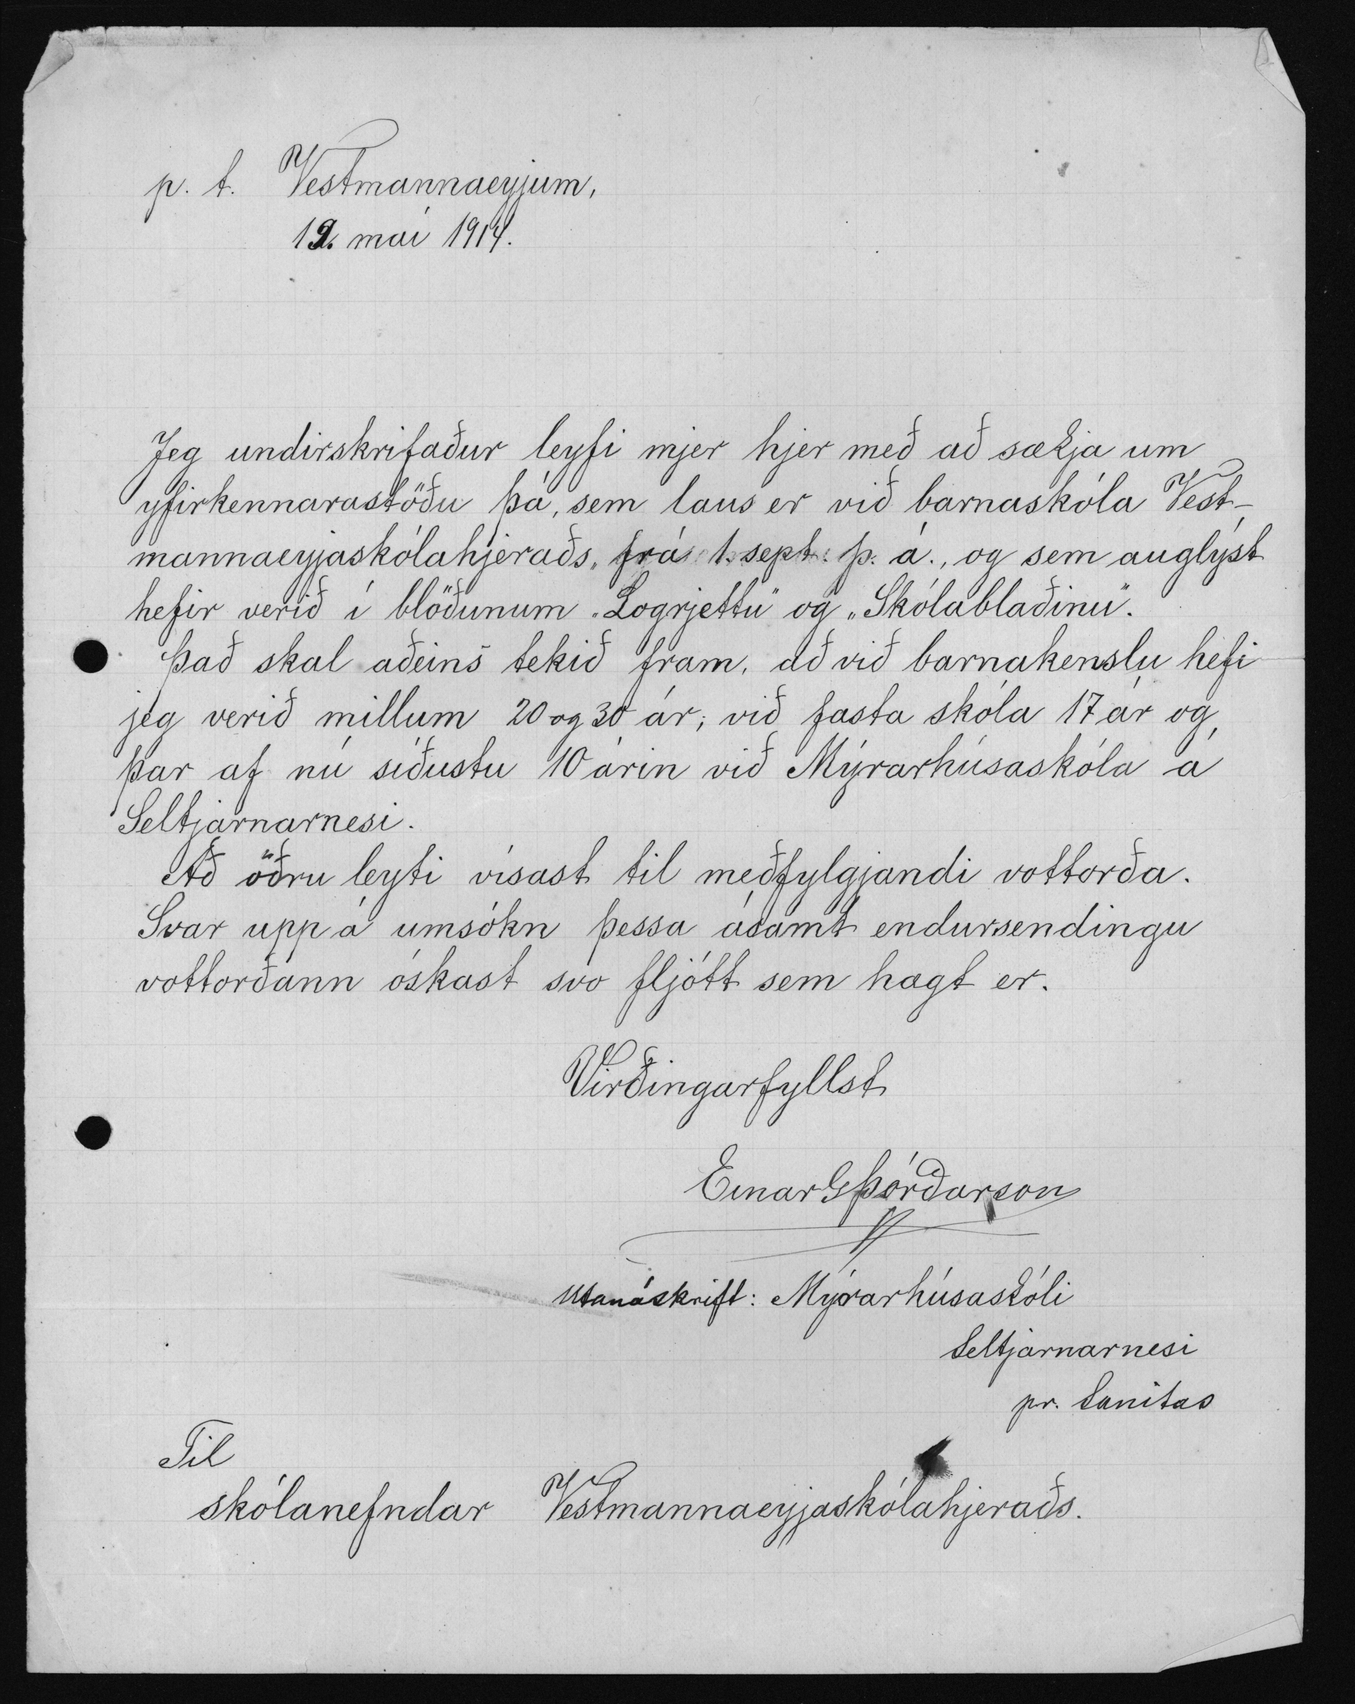 p. t. Vestmannaeyjum,
19. mai 1914.
Jeg undirskrifaður leyfi mjer hjer með að sækja um
yfirkennarastöðu þá, sem laus er við barnaskóla Vest-
mannaeyjaskólahjeraðs, frá 1. sept. þ. á., og sem auglýst
hefir verið í blöðunum „Logrjettu" og „Skólablaðinu".
Það skal aðeins tekið fram, að við barnakenslu hefi
jeg verið millum 20 og 30 ár; við fasta skóla 17 ár og
þar af nú síðustu 10 árin við Mýrarhúsaskóla á
Seltjarnarnesi.
Að öðru leyti vísast til meðfylgjandi vottorða.
Svar upp á umsókn þessa ásamt endursendingu
vottorðann óskast svo fljótt sem hægt er.
Virðingarfyllst
Einar G Þórðarson
Utanáskrift: Mýrarhúsaskóli
Seltjarnarnesi
pr. Sanitas
Til
skólanefndar Vestmannaeyjaskólahjeraðs.